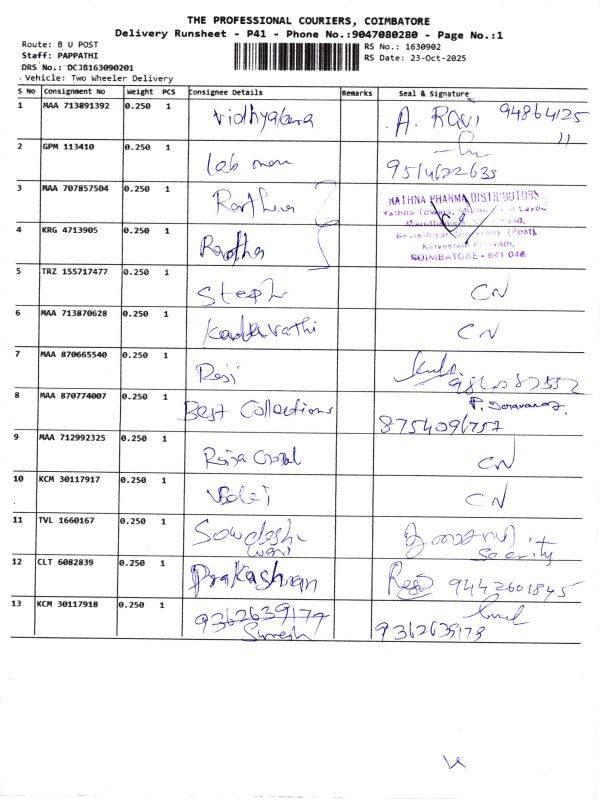 THE PROFESSIONAL COURIERS, COIMBATORE
Delivery Runsheet - P41 - Phone No.:9047080280 - Page No.:1
Route: B U POST
RS No.: 1630902
Staff: PAPPATHI
RS Date: 23-Oct-2025
DRS No.: DCJ8163090201
Vehicle: Two Wheeler Delivery
S No Consignment No Weight PCS Consignee Details Remarks Seal & Signature
1 MAA 713891392 0.250 1 A. RAVI 94864125
11
2 GPM 113410 0.250 1 lab man
9514622635
3 MAA 707857504 0.250 1
RATHNA PHARMA DISTRIBUTORS
4 KRG 4713905 0.250 1 Radha
COIMBATORE - 641 046
5 TRZ 155717477 0.250 1 Steph CN
6 MAA 713870628 0.250 1 CN
7 MAA 870665540 0.250 1 Reji
8 MAA 870774007 0.250 1 Best Collections
8754096757
9 MAA 712992325 0.250 1 CN
10 KCM 30117917 0.250 1 CN
11 TVL 1660167 0.250 1
Security
12 CLT 6082839 0.250 1 9442601845
13 KCM 30117918 0.250 1 9362639179
Suresh 9362639179